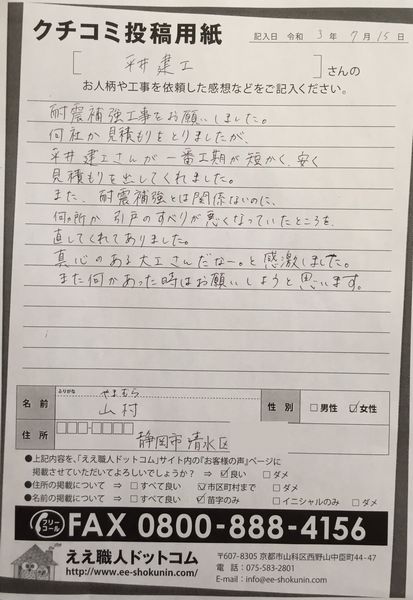 クチコミ投稿用紙
記入日 令和 3 年 7 月 15 日
[ 平井建工 ] さんの
お人柄や工事を依頼した感想などをご記入ください。
耐震補強工事をお願いしました。
何社か見積もりをとりましたが、
平井建工さんが一番工期が短かく、安く
見積もりを出してくれました。
また、耐震補強とは関係ないのに、
何ヶ所か 引戸のすべりが悪くなっていたところを、
直してくれてありました。
真心のある大工さんだなー。と感激しました。
また何かあった時はお願いしようと思います。
名前 ふりがな やまむら
山村
性別 □男性 ☑女性
住所 □□□-□□□□
静岡市清水区
●上記内容を、「ええ職人ドットコム」サイト内の『お客様の声』ページに
掲載させていただいてよろしいでしょうか? ⇒ ☑良い □ダメ
●住所の掲載について ⇒ □すべて良い ☑市区町村まで □ダメ
●名前の掲載について ⇒ □すべて良い ☑苗字のみ □イニシャルのみ □ダメ
フリーコール FAX 0800-888-4156
ええ職人ドットコム
http://www.ee-shokunin.com/
〒607-8305 京都市山科区西野山中臣町44-47
電話:075-583-2801
E-mail:info@ee-shokunin.com